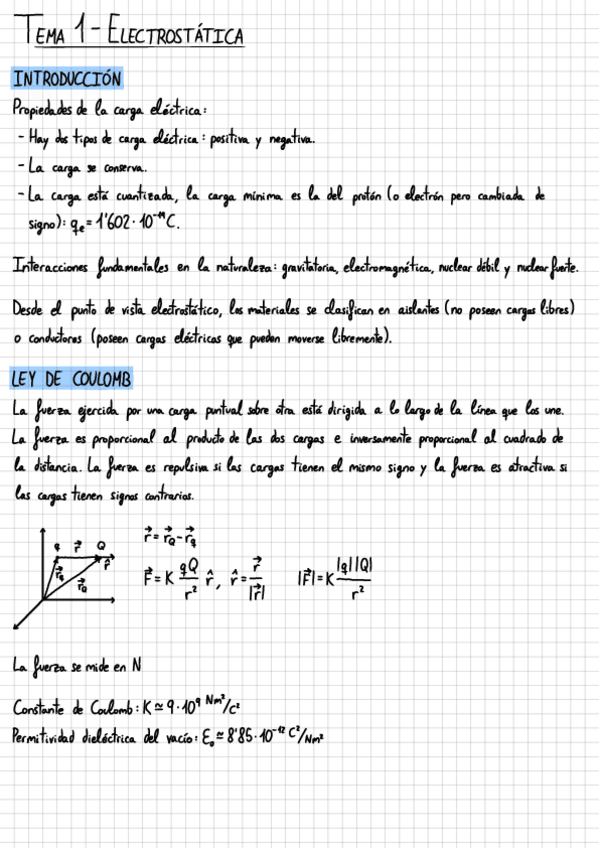 TEMA 1 - ELECTROSTÁTICA
INTRODUCCIÓN
Propiedades de la carga eléctrica:
- Hay dos tipos de carga eléctrica: positiva y negativa.
- La carga se conserva.
- La carga está cuantizada, la carga mínima es la del protón (o electrón pero cambiada de
signo): qₑ = 1'602·10⁻¹⁹ C.
Interacciones fundamentales en la naturaleza: gravitatoria, electromagnética, nuclear débil y nuclear fuerte.
Desde el punto de vista electrostático, los materiales se clasifican en aislantes (no poseen cargas libres)
o conductores (poseen cargas eléctricas que pueden moverse libremente).
LEY DE COULOMB
La fuerza ejercida por una carga puntual sobre otra está dirigida a lo largo de la línea que los une.
La fuerza es proporcional al producto de las dos cargas e inversamente proporcional al cuadrado de
la distancia. La fuerza es repulsiva si las cargas tienen el mismo signo y la fuerza es atractiva si
las cargas tienen signos contrarios.
q r⃗ Q r̂
r⃗q r⃗Q
r⃗ = r⃗Q - r⃗q
F⃗ = K qQ/r² r̂, r̂ = r⃗/|r⃗| |F⃗| = K |q||Q|/r²
La fuerza se mide en N
Constante de Coulomb: K ≃ 9·10⁹ Nm²/C²
Permitividad dieléctrica del vacío: ε₀ ≃ 8'85·10⁻¹² C²/Nm²